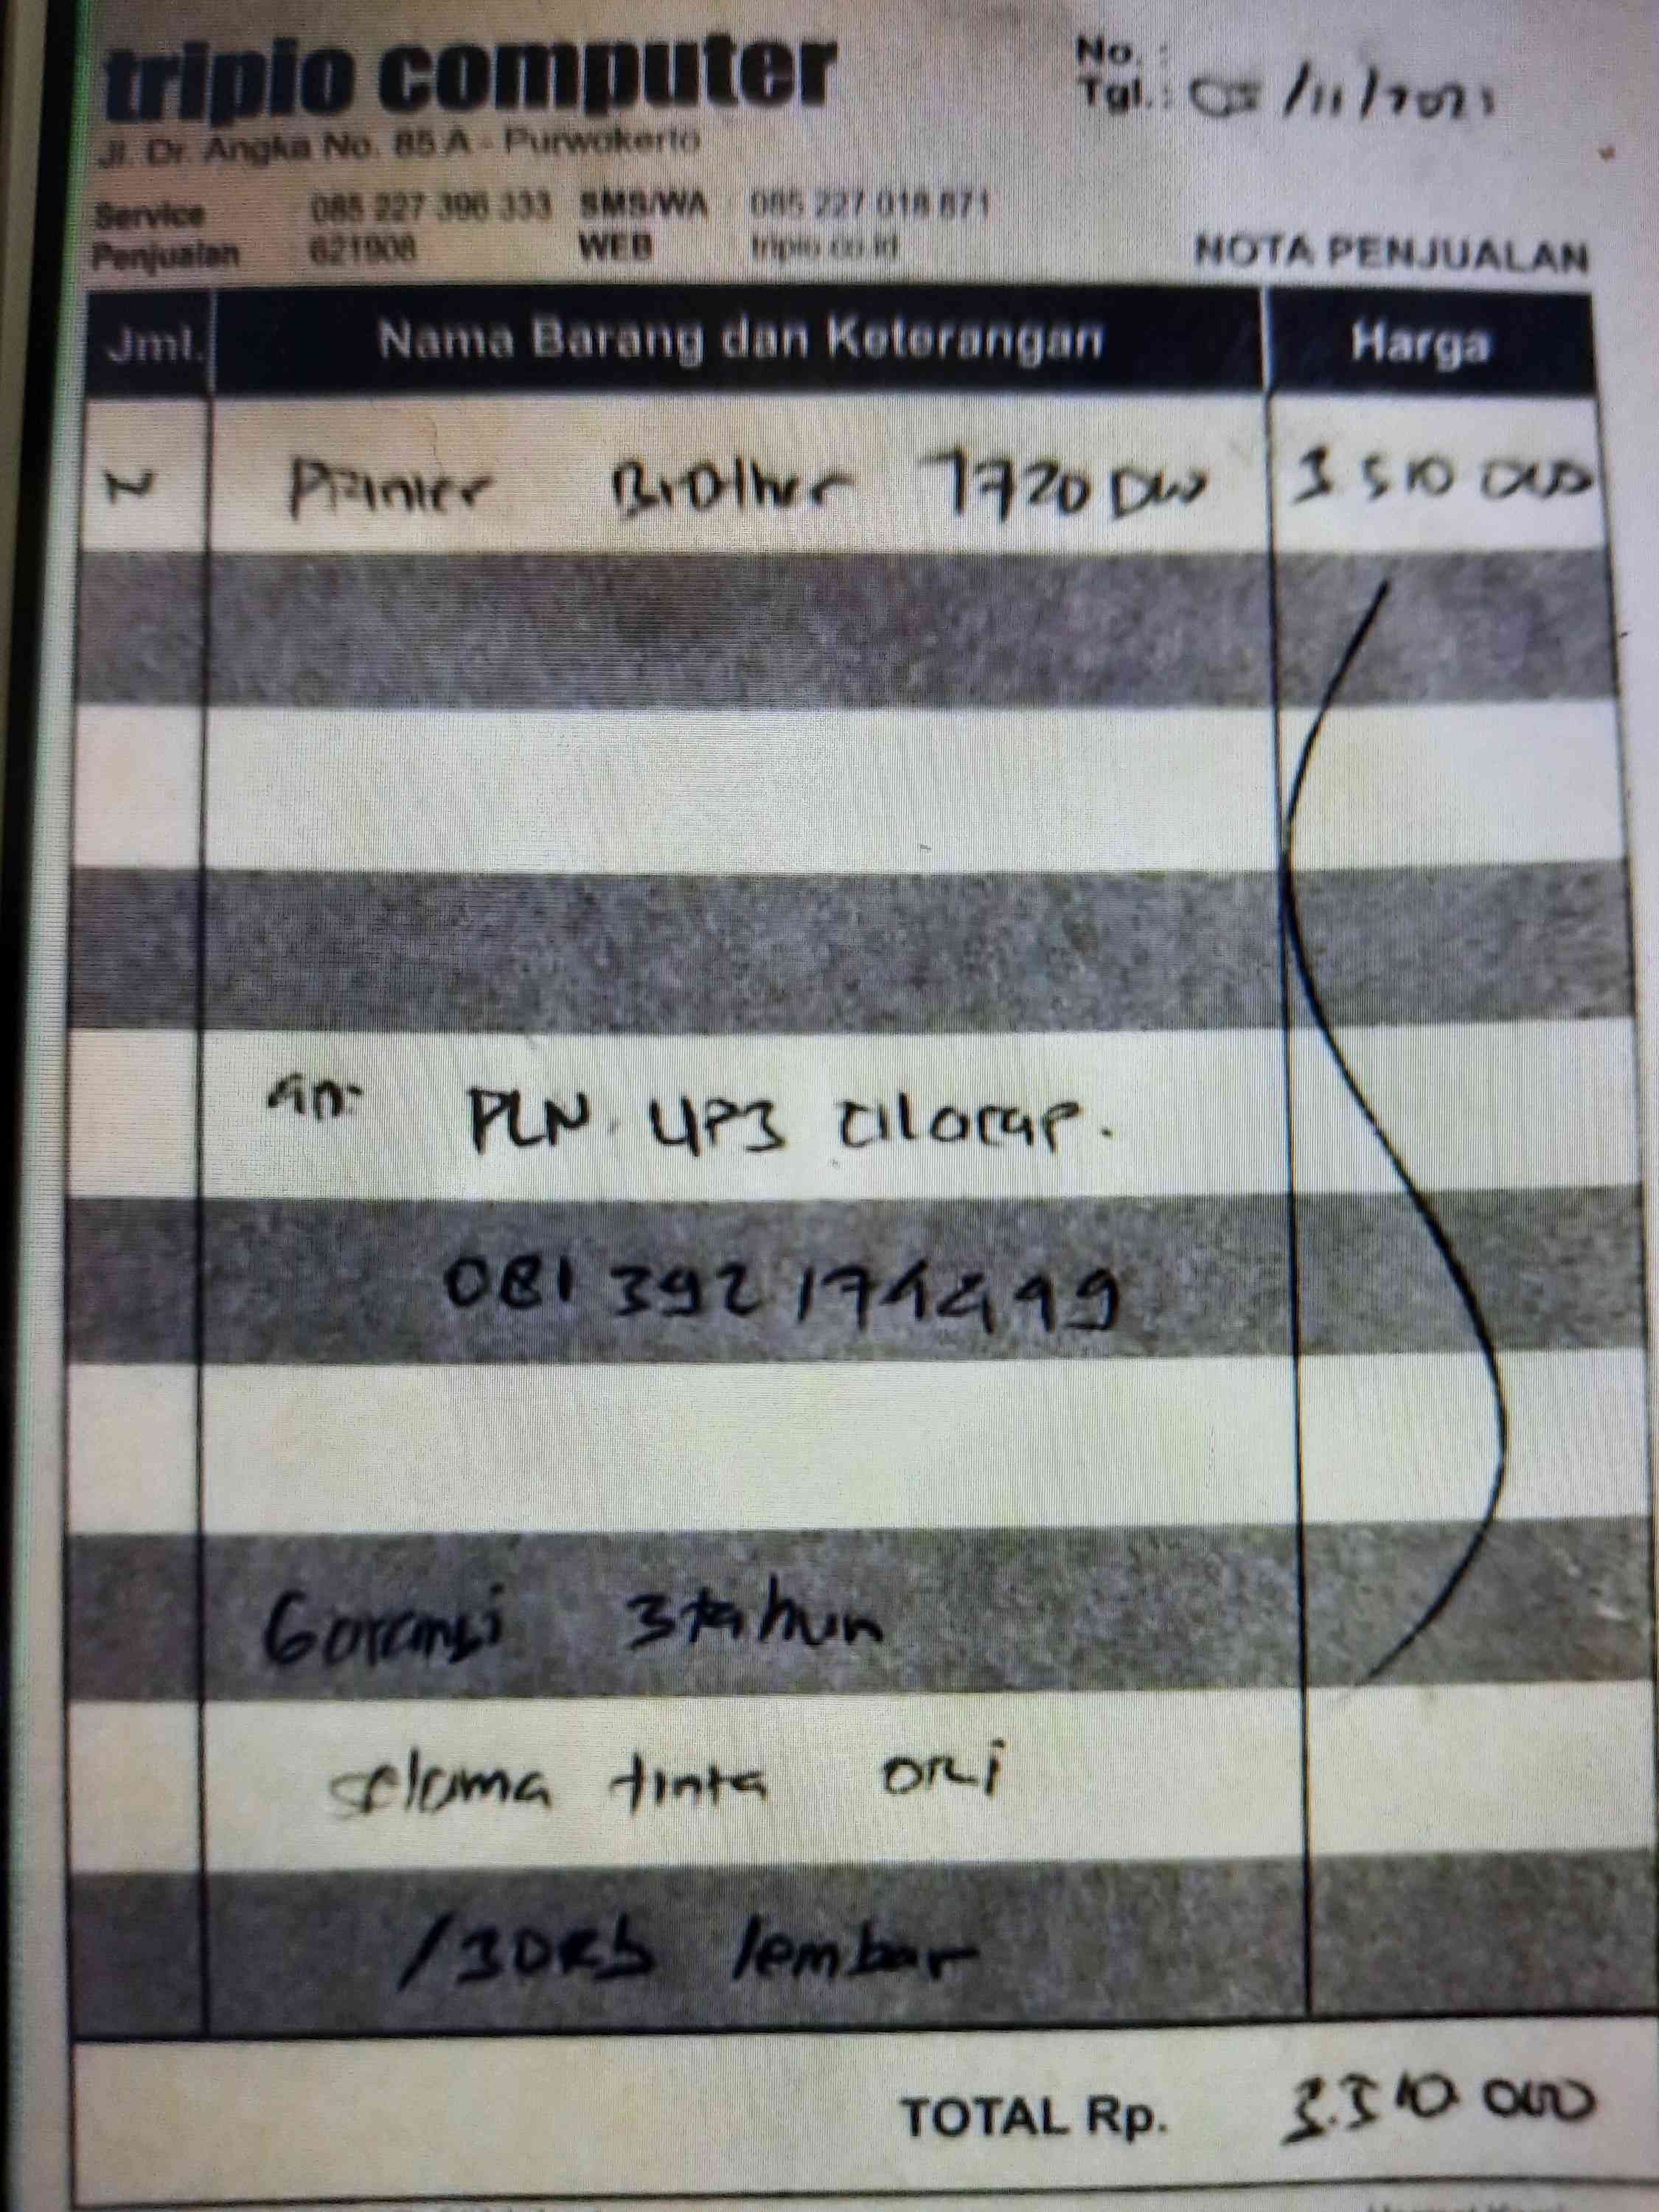 tripio computer
No. :
Tgl. : /11/2021
Jl. Dr. Angka No. 85 A - Purwokerto
Service 085 227 396 333 SMS/WA 085 227 018 871
Penjualan 621908 WEB tripio.co.id
NOTA PENJUALAN
Jml. Nama Barang dan Keterangan Harga
Printer Brother T720 DW 3 510 000
an. PLN UP3 cilacap.
081 392 174499
Garansi 3 tahun
selama tinta ori
/30Rb lembar
TOTAL Rp. 3.510 000